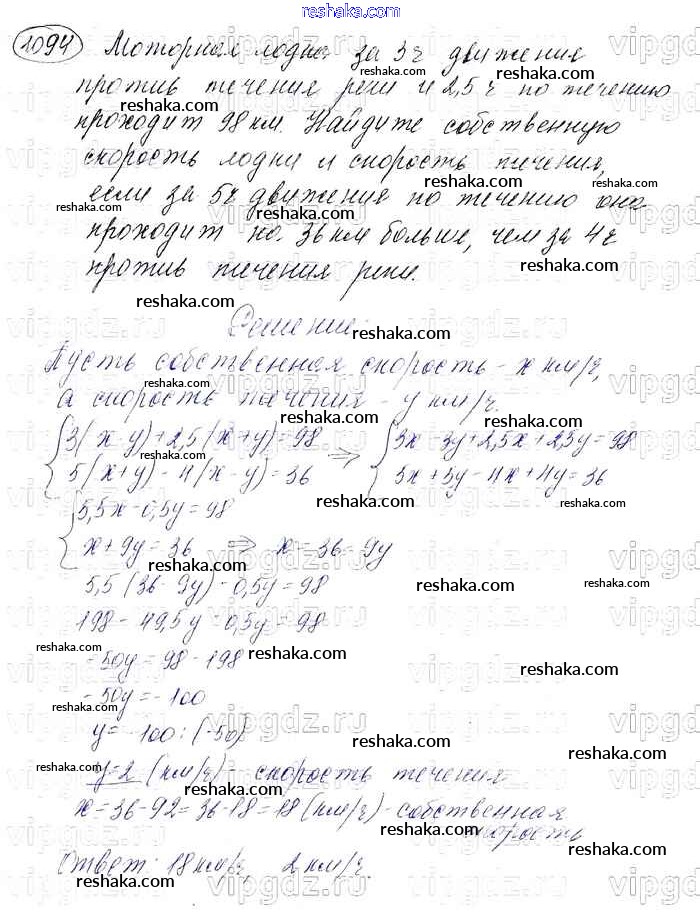 reshaka.com
1094 Моторная лодка за 3 ч движения
против течения реки и 2,5 ч по течению
reshaka.com reshaka.com
проходит 98 км. Найдите собственную
reshaka.com
скорость лодки и скорость течения,
reshaka.com reshaka.com
если за 5ч движения по течению она
reshaka.com reshaka.com
проходит на 36 км больше, чем за 4 ч
reshaka.com
против течения реки.
reshaka.com
Решение:
Пусть собственная скорость - x км/ч,
reshaka.com reshaka.com
а скорость течения - y км/ч.
reshaka.com
3(x-y)+2,5(x+y)=98 => 3x-3y+2,5x+2,5y=98
reshaka.com reshaka.com
5(x+y)-4(x-y)=36 5x+5y-4x+4y=36
reshaka.com
5,5x-0,5y=98
x+9y=36 => x=36-9y
reshaka.com
5,5(36-9y)-0,5y=98
reshaka.com reshaka.com
198-49,5y-0,5y=98
reshaka.com reshaka.com
-50y=98-198
-50y=-100
reshaka.com
y=-100:(-50)
reshaka.com reshaka.com
y=2 (км/ч) - скорость течения
reshaka.com reshaka.com
x=36-9·2=36-18=18 (км/ч) - собственная
reshaka.com скорость
reshaka.com
Ответ: 18 км/ч, 2 км/ч.
reshaka.com reshaka.com
vipgdz.ru